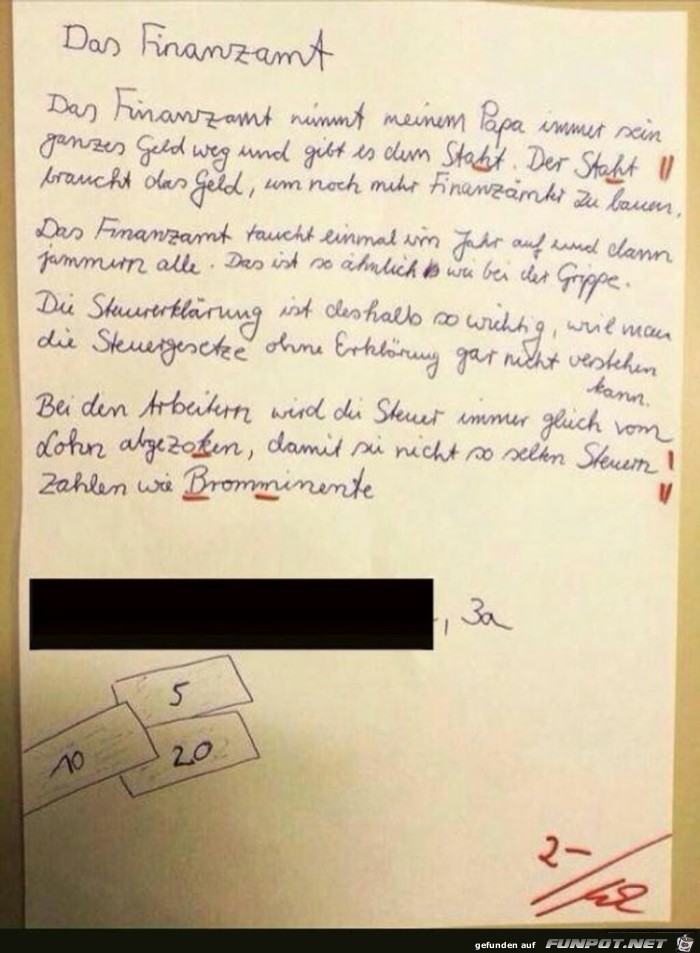 Das Finanzamt
Das Finanzamt nimmt meinem Papa immer sein
ganzes Geld weg und gibt es dem Staht. Der Staht
braucht das Geld, um noch mehr Finanzämter zu bauen.
Das Finanzamt taucht einmal im Jahr auf und dann
jammern alle. Das ist so ähnlich wie bei der Grippe.
Die Steuererklärung ist deshalb so wichtig, weil man
die Steuergesetze ohne Erklärung gar nicht verstehen
kann.
Bei den Arbeitern wird die Steuer immer gleich vom
Lohn abgezoken, damit sie nicht so selten Steuern
Zahlen wie Bromminente
, 3a
5
10
20
2-
gefunden auf FUNPOT.NET